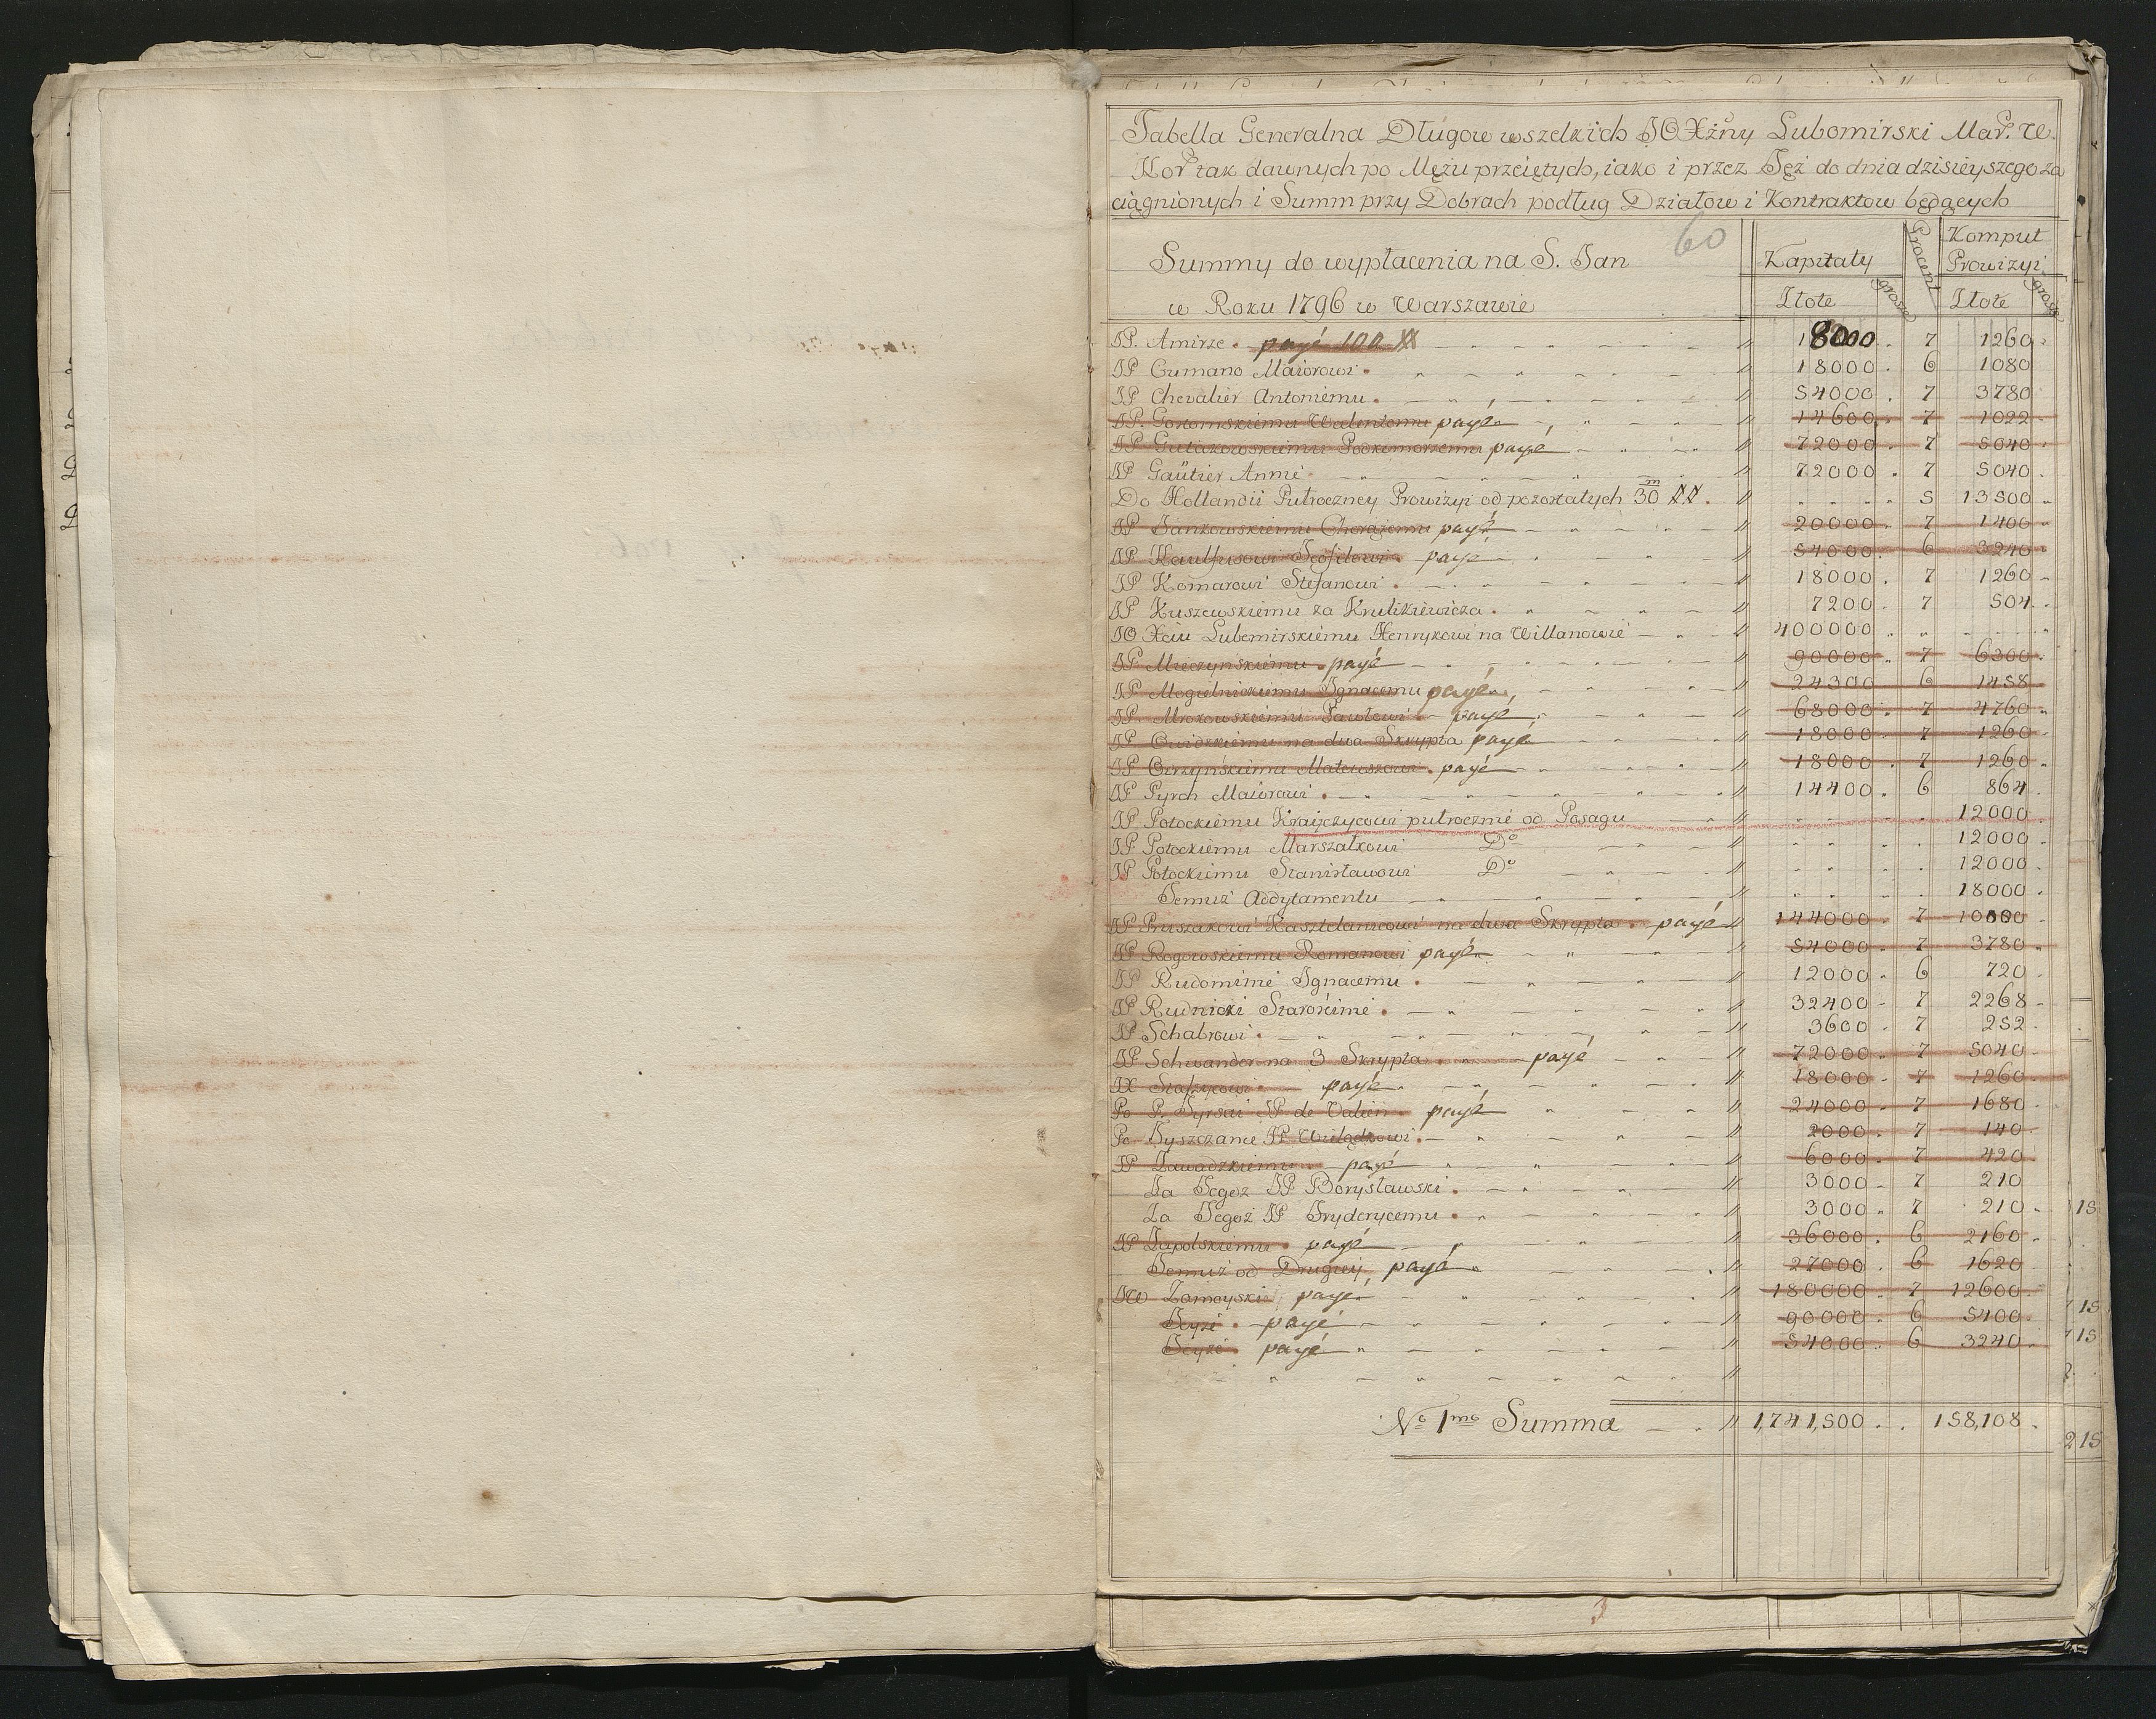 Tabella Generalna Długow wszelkich JO Xżny Lubomirski Mar. W.
Kor tak dawnych po Mężu przeiętych, iako i przez Jęż do dnia dzisieyszego za
ciągnionych i Summ przy Dobrach podług Działow i Kontraktow będących
60
Summy do wypłacenia na S. Jan
w Roku 1796 w Warszawie
Kapitały Procent Komput Prowizyi
Złote grosze Złote grosze
JP. Amirze. payé 100 18000 7 1260
JP Cumano Maiorowi 18000 6 1080
JP Chevalier Antoniemu 54000 7 3780
JP. Gostomskiemu Walentemu payé 14600 7 1022
JP Gutakowskiemu Podkomorzemu payé 72000 7 5040
JP Gaütier Annie 72000 7 5040
Do Hollandii Pułroczney Prowizyi od pozostałych 30 m 5 13500
JP Jankowskiemu Chorążemu payé 20000 7 1400
JP Kaulfusowi Teofilowi payé 54000 6 3240
JP Komarowi Stefanowi 18000 7 1260
JP Kuszewskiemu za Krulikiewicza 7200 7 504
JO Xciu Lubomirskiemu Henrykowi na Willanowie 400000
JP Mieczynskiemu payé 90000 7 6300
JP Mogielnickiemu Ignacemu payé 24300 6 1458
JP. Mrokowskiemu Pawłowi payé 68000 7 4760
JP Owidzkiemu na dwa Skrypta payé 18000 7 1260
JP Mateuszowi payé 18000 7 1260
JP Pyrch Maiorowi 14400 6 864
JP Potockiemu Kraiczycowi pułrocznie od Posagu 12000
JP Potockiemu Marszałkowi Do 12000
JP Potockiemu Stanisławowi Do 12000
Temuż Addytamentu 18000
JP Pruszakowi Kasztelanicowi na dwa Skrypta payé 144000 7 10080
JP Rogowskiemu Romanowi payé 54000 7 3780
JP Rudominie Ignacemu 12000 6 720
JP Rudnicki Starościnie 32400 7 2268
JP Schabowi 3600 7 252
JP Schwander na 3 Skrypta payé 72000 7 5040
JX Staszycowi payé 18000 7 1260
Po P. JP de Valien payé 24000 7 1680
Po Tyszczanie JP Wielądkowi 2000 7 140
JP Zawadzkiemu payé 6000 7 420
Za Tegoż JP Borysławski 3000 7 210
Za Tegoż JP Fryderycemu 3000 7 210
JP Zapolskiemu payé 36000 6 2160
Temuż od Drugiey payé 27000 6 1620
JW Zamoyski payé 180000 7 12600
Teyże payé 90000 6 5400
Teyże payé 54000 6 3240
No 1mo Summa 1,741,500 158,108
15
15
15
2 15
3